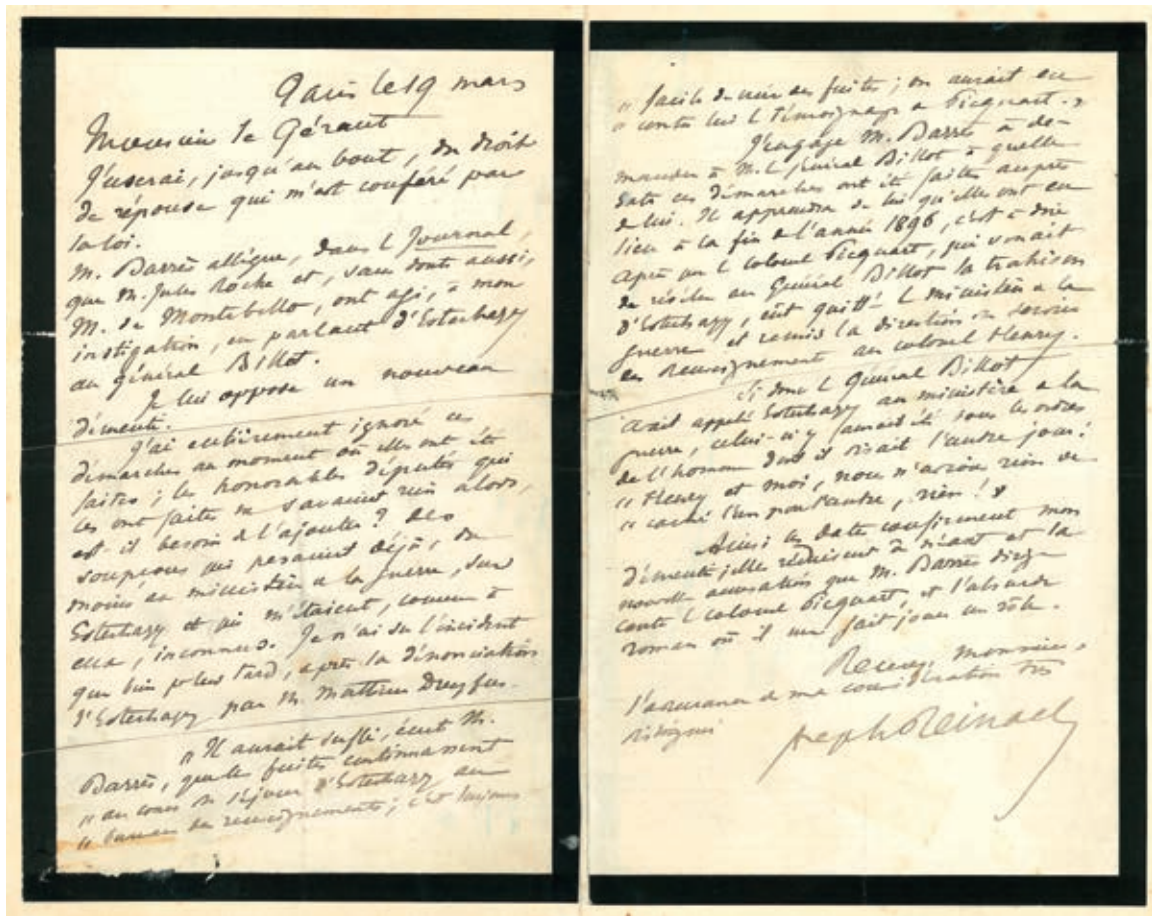 Paris le 19 mars
Monsieur le Gérant
J'userai, jusqu'au bout, du droit
de réponse qui m'est conféré par
la loi.
M. Barrès allègue, dans le Journal,
que M. Jules Roche et, sans doute aussi,
M. de Montebello, ont agi, à mon
instigation, en parlant d'Esterhazy
au général Billot.
Je lui oppose un nouveau
démenti.
J'ai entièrement ignoré ces
démarches au moment où elles ont été
faites ; les honorables députés qui
les ont faites ne savaient rien alors,
est-il besoin de l'ajouter ? des
soupçons qui pesaient déjà, du
moins au ministère de la guerre, sur
Esterhazy et qui m'étaient, comme à
eux, inconnus. Je n'ai su l'incident
que bien plus tard, après la dénonciation
d'Esterhazy par M. Mathieu Dreyfus.
" Il aurait suffi, écrit M.
Barrès, que les fuites continuassent
" au cours du séjour d'Esterhazy au
" bureau des renseignements ; c'est toujours
" facile de voir des fuites ; on aurait eu
" contre lui le témoignage de Picquart. "
J'engage M. Barrès à de-
mander à M. le général Billot à quelle
date ces démarches ont été faites auprès
de lui. Il apprendra de lui qu'elles ont eu
lieu à la fin de l'année 1896, c'est à dire
après que le colonel Picquart, qui venait
de révéler au Général Billot la trahison
d'Esterhazy, eût quitté le ministère de la
guerre et remis la direction du service
des Renseignements au colonel Henry.
Si donc le Général Billot
avait appelé Esterhazy au ministère de la
guerre, celui-ci y aurait été sous les ordres
de l'homme dont il disait l'autre jour :
" Henry et moi, nous n'avions rien de
" caché l'un pour l'autre, rien ! "
Ainsi les dates confirment mon
démenti ; elles réduisent à néant et la
nouvelle accusation que M. Barrès dirige
contre le colonel Picquart, et l'absurde
roman où il me fait jouer un rôle.
Recevez, monsieur,
l'assurance de ma considération très
distinguée
Joseph Reinach